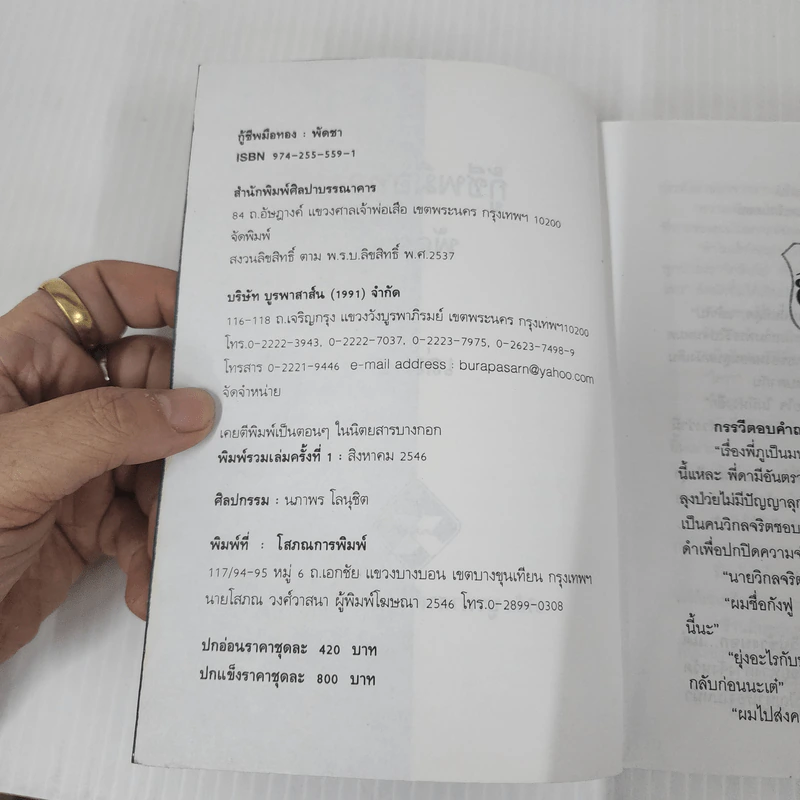 กู้ชีพมือทอง : พัดชา
ISBN 974-255-559-1
สำนักพิมพ์ศิลปาบรรณาคาร
84 ถ.อัษฎางค์ แขวงศาลเจ้าพ่อเสือ เขตพระนคร กรุงเทพฯ 10200
จัดพิมพ์
สงวนลิขสิทธิ์ ตาม พ.ร.บ.ลิขสิทธิ์ พ.ศ.2537
บริษัท บูรพาสาส์น (1991) จำกัด
116-118 ถ.เจริญกรุง แขวงวังบูรพาภิรมย์ เขตพระนคร กรุงเทพฯ10200
โทร.0-2222-3943, 0-2222-7037, 0-2223-7975, 0-2623-7498-9
โทรสาร 0-2221-9446 e-mail address : burapasarn@yahoo.com
จัดจำหน่าย
เคยตีพิมพ์เป็นตอนๆ ในนิตยสารบางกอก
พิมพ์รวมเล่มครั้งที่ 1 : สิงหาคม 2546
ศิลปกรรม : นภาพร โลนุชิต
พิมพ์ที่ : โสภณการพิมพ์
117/94-95 หมู่ 6 ถ.เอกชัย แขวงบางบอน เขตบางขุนเทียน กรุงเทพฯ
นายโสภณ วงศ์วาสนา ผู้พิมพ์โฆษณา 2546 โทร.0-2899-0308
ปกอ่อนราคาชุดละ 420 บาท
ปกแข็งราคาชุดละ 800 บาท
กรรวีตอบคำถ
"เรื่องพี่ภูเป็นม
นี้แหละ พี่ดามีอันตรา
ลุงป่วยไม่มีปัญญาลุก
เป็นคนวิกลจริตชอบ
ดำเพื่อปกปิดความจ
"นายวิกลจริต
"ผมชื่อกังฟู
นี้นะ"
"ยุ่งอะไรกับ
กลับก่อนนะเต๋"
"ผมไปส่งค